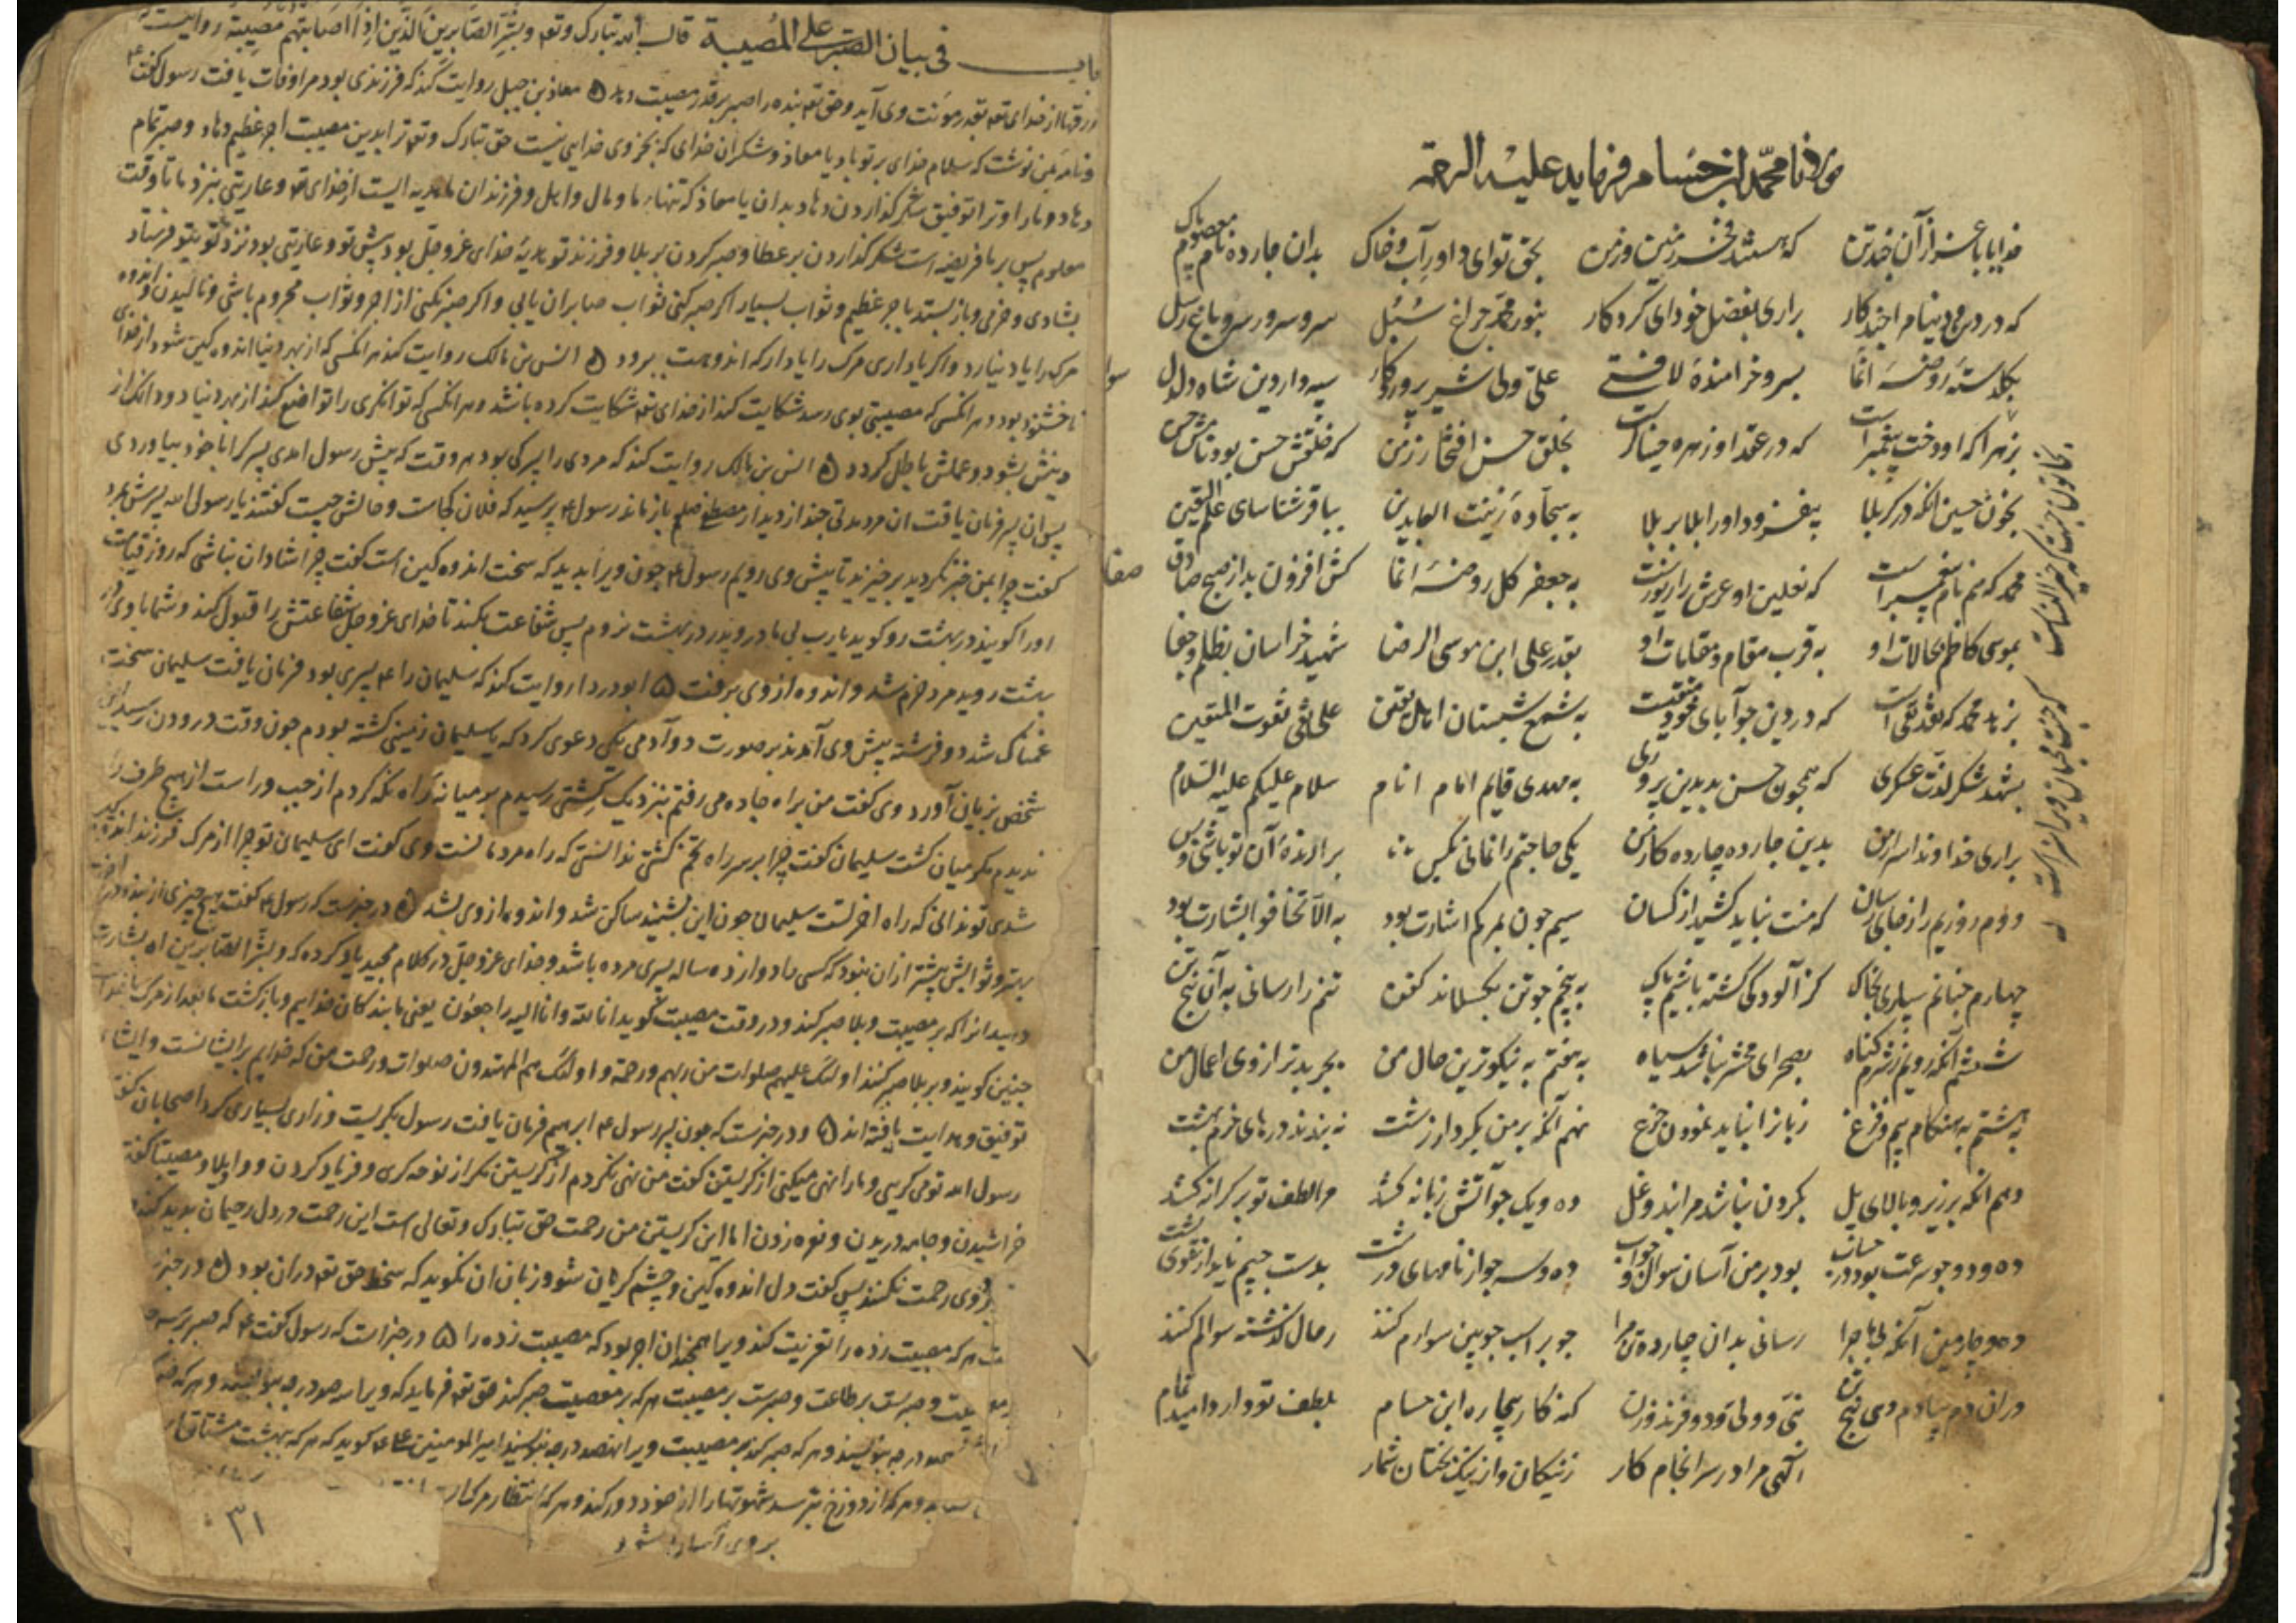 مولانا محمد ابن حسام فرماید علیه الرحمه
خدایا باعزاز آن پنج تن که هستند فخر زمین و زمن بحق تو ای داور آب و خاک بدان چارده نام معصوم پاک
که در دین و دنیا مرا پنج کار براری بفضل خود ای کردکار بنور محمد چراغ سبل سر و سرور سرو باغ رسل
بکلدسته روضه انما بسرو خرامنده لافتی علی ولی شیر پروردکار سپه دار دین شاه دلدل سوار
بزهرا که او دخت پیغمبر است که در عقد او زهره بخلق حسن افتخار زمن که خلقش حسن بود نامش حسن
بخون حسین انکه در کربلا بیفزود او را بلا بر بلا به سجاده زینت العابدین بباقر شناسای علم الیقین
محمد که هم نام پیغمبر است که نعلین او عرش را زیور است به جعفر کل روضه انما کش افزون بد از صبح صادق صفا
بموسی کاظم بحالات او به قرب مقام و مقامات او بقدر علی ابن موسی الرضا شهید خراسان بظلم و جفا
بزهد محمد که نقد تقی است که در دین چو آبای خود متقیست به شمع شبستان اهل یقین علی نقی
بشهد شکر لذت عسکری که همچون حسن بد بدین پروری به مهدی قایم امام انام سلام علیکم علیه السلام
براری خداوندا سرار من بدین چارده چارده کار من یکی حاجتم را نمانی بکس برارنده آن تو باشی و بس
دوم روزیم را ز جای رسان که منت نباید کشید از کسان سیم چون بمرکم اشارت بود به الا تخافوا بشارت بود
چهارم چنانم سپاری بخاک کز آلودکی کشته باشیم پاک به پنجم چو تن بکسلاند کفن تنم را رسانی به آن پنج تن
ششم آنکه رویم ز شرم کناه بصحرای محشر نباشد سیاه به هفتم به نیکوترین حال من بچربد ترازوی اعمال من
به هشتم به هنکام بیم و فزع زبانرا نباید نمودن جزع نهم آنکه بر من بکردار زشت نبندند درهای خرم بهشت
دهم انکه بر زیر و بالای پل بکردن نباشد مرا بند و غل ده و یک چو آتش زبانه کشد مرا لطف تو بر کرانه کشد
ده و دو چو سرعت بود در حساب بود بر من آسان سوال و جواب ده و سه چو از نامهای درشت بدست چپم ناید از تقوی پشت
ده و چارمین آنکه بی ماجرا رسانی بدان چارده تن مرا چو بر اسب چوبین سوارم کنند ز حال کذشته سوالم کنند
دران دم بیادم دهی پنج تن نبی و ولی و دو فرزند و زن که ناکار بیچاره ابن حسام بلطف تو دارد امید تمام
آکهی مرا در سرانجام کار ز نیکان و از نیک بختان شمار
باب فی بیان الصبر علی المصیبة قال الله تبارک وتع وبشر الصابرین الذین اذا اصابتهم مصیبة روایتست
ورقها از خدای تع بقدر مونت وی آید و حق تع بنده را صبر بر قدر مصیبت دهد معاذ بن جبل روایت کند که فرزندی بود مرا وفات یافت رسول کفت
و نامه بمن نوشت که سلام خدای بر تو باد یا معاذ و شکر آن خدای که بجز وی خدایی نیست حق تبارک و تع ترا بدین مصیبت اجر عظیم دهاد و صبر تمام
دهاد و ما را و ترا توفیق شکر کذاردن دهاد بدان یا معاذ که تنهاء ما و مال و اهل و فرزندان ما هدیه ایست از خدای تع و عاریتی بنزد ما تا وقت
معلوم پس بر ما فریضه است شکر کذاردن بر عطا و صبر کردن بر بلا و فرزند تو هدیه خدای عز و جل بود پیش تو و عاریتی بود نزد تو بتو فرستاد
بشادی و خرمی و باز بستد باجر عظیم و ثواب بسیار اکر صبر کنی ثواب صابران یابی و اکر صبر نکنی از اجر و ثواب محروم باشی و نالیدن و اندوه
مرک را باد نیارد و اکر یاد اری مرک را یاد ار که اندوهت ببرود انس بن مالک روایت کند هر انکسی که از بهر دنیا اندوه کین شود از خدای
ناخشنود بود و هر انکسی که مصیبتی بوی رسد شکایت کند از خدای تع شکایت کرده باشد و هر انکسی که توانکری را تواضع کند از بهر دنیا دو دانک از
دینش بشود و عملش باطل کردد انس بن مالک روایت کند که مردی را پسرکی بود هر وقت که پیش رسول امدی پسرک را با خود بیاوردی
پس ان پسر فرمان یافت ان مرد مدتی چند از دیدار مصطفی صلعم باز ماند رسول ۴ پرسید که فلان کجاست و حالش چیست کفتند یا رسول الله پسرش بمرد
کفت چرا بمن خبر نکردید برخیزید تا پیش وی رویم رسول ۴ چون ویرا بدید که سخت اندوه کین است کفت چرا شادان نباشی که روز قیامت
او را کویند در بهشت رو کوید یا رب بی مادر و پدر در بهشت نروم پس شفاعت بکند تا خدای عز و جل شفاعتش را قبول کند و شما با وی در
بهشت روید مرد خرم شد و اندوه از وی برفت ابو دردا روایت کند که سلیمان را ۴ پسری بود فرمان یافت سلیمان سخت
غمناک شد دو فرشته پیش وی آمدند بر صورت دو آدمی یکی دعوی کرد که یا سلیمان زمینی کشته بودم چون وقت درودن رسید این
شخص بزیان آورد وی کفت من براه جاده می رفتم بنزدیک کشتی رسیدم بر میانه راه نکه کردم از چپ و راست از هیچ طرف راه
ندیدم مکر میان کشت سلیمان کفت چرا بر سر راه تخم کشتی ندانستی که راه مردمانست وی کفت ای سلیمان تو چرا از مرک فرزند اندوه
شدی تو ندانی که راه اخرتست سلیمان چون این بشنید ساکن شد و اندوه از وی بشد در خبرست که رسول ۴ کفت هیچ چیزی از
بهتر و ثوابش بیشتر از ان نبود که کسی را دوازده ساله پسری مرده باشد و خدای عز و جل در کلام مجید یاد کرده که وبشر الصابرین اه بشارت
دهید انرا که بر مصیبت و بلا صبر کند و در وقت مصیبت کوید انا لله وانا الیه راجعون یعنی ما بندکان خدایم و بازکشت ما بعد از مرک
چنین کویند و بر بلا صبر کنند اولئک علیهم صلوات من ربهم ورحمة واولئک هم المهتدون صلوات و رحمت من که خدایم بر ایشانست و ایشان
توفیق و هدایت یافته اند و در خبرست که چون پسر رسول ۴ ابرهیم فرمان یافت رسول بکریست و زاری بسیاری کرد اصحابان کفتند
رسول الله تو می کریی و ما را نهی میکنی از کریستن کفت من نهی نکردم از کریستن مکر از نوحه کری و فریاد کردن و واویلا و مصیبتا کفتن
خراشیدن و جامه دریدن و نوه زدن اما این کریستن من رحمت حق تبارک و تعالی است این رحمت در دل رحیمان پدید کند
بر وی رحمت نکنند پس کفت دل اندوه کین و چشم کریان شود و زبان ان نکوید که سخط حق تع در ان بود در خبر
هر که مصیبت زده را تعزیت کند ویرا همچندان اجر بود که مصیبت زده را در خبر است که رسول کفت ۴ که صبر بر سه
و صبرست بر طاعت و صبرست بر مصیبت هر که بر معصیت صبر کند حق تع فرماید که ویرا سه صد درجه بنویسند و هر که
درجه بنویسند و هر که صبر کند بر مصیبت ویرا نهصد درجه بنویسند امیر المومنین علی ۴ کوید که هر که ببهشت مشتاق
و هر که از دوزخ بترسد شهوتها را از خود دور کند و هر که انتظار مرک
بر وی آسان شود
۳۱